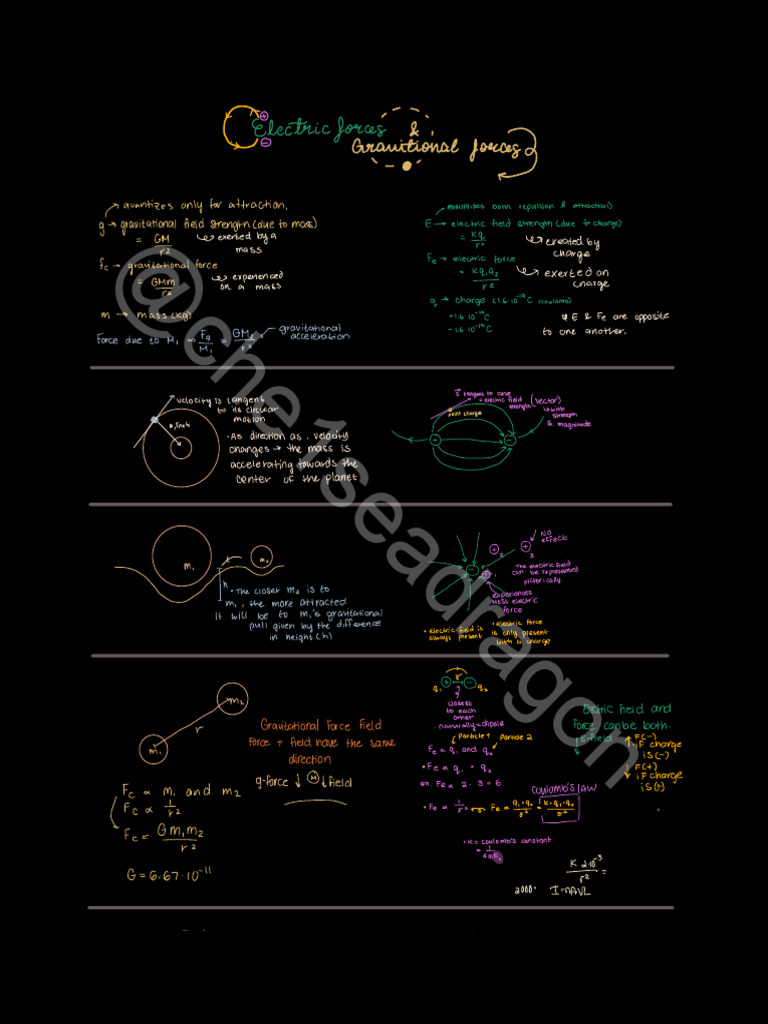 Electric forces &
Gravitional forces
quantizes only for attraction.
g → gravitational field strength (due to mass)
= GM
r²
exerted by a
mass
fc → gravitational force
= GMm
r²
experienced
on a mass
m → mass (kg)
Force due to M₁
Fg
M₁
= GM₂
r²
gravitational
acceleration
quantizes both repulsion & attraction)
E → electric field strength (due to charge)
= Kq
r²
created by
charge
Fe → electric force
= Kq₁q₂
r²
exerted on
charge
q → charge (1.6·10⁻¹⁹C (coulombs)
+1.6·10⁻¹⁹C
-1.6·10⁻¹⁹C
E & Fe are opposite
to one another.
velocity is tangent
to its circular
motion
a, Fnet
• As direction as, velocity
changes → the mass is
accelerating towards the
center of the planet
tangent to curve
= electric field
strength (vector)
point charge
with
strength
& magnitude
+
-
m₁
m₂
r
h
• The closer m₂ is to
m₁, the more attracted
it will be to m₁'s gravitational
pull given by the difference
in height (h)
NO
effect
+
2
+
3
-
1
The electric field
can be represented
pictorically
experiences
most electric
force
• electric field is
always present
• electric force
is only present
with a charge
m₂
r
m₁
Gravitational Force Field
Force + field have the same
direction
g-force ↓ M ↓ field
Fc ∝ m₁ and m₂
Fc ∝ 1
r²
Fc = Gm₁m₂
r²
G = 6.67·10⁻¹¹
r
q₁ + - q₂
closest
to each
other
naturally = dipole
Particle 1 Particle 2
Fe ∝ q₁ and q₂
• Fe ∝ q₁ · q₂
ex. Fe ∝ 2 · 3 = 6
Coulomb's law
• Fe ∝ 1
r²
Fe ∝ q₁·q₂
r²
= K·q₁·q₂
r²
• K = coulomb's constant
= 1
Elctric field and
Force can be both
E-field
↑ F(-)
if charge
is (-)
↓ F(+)
if charge
is (+)
K 2·10⁻³
r²
=
2000·
@che1seadragon